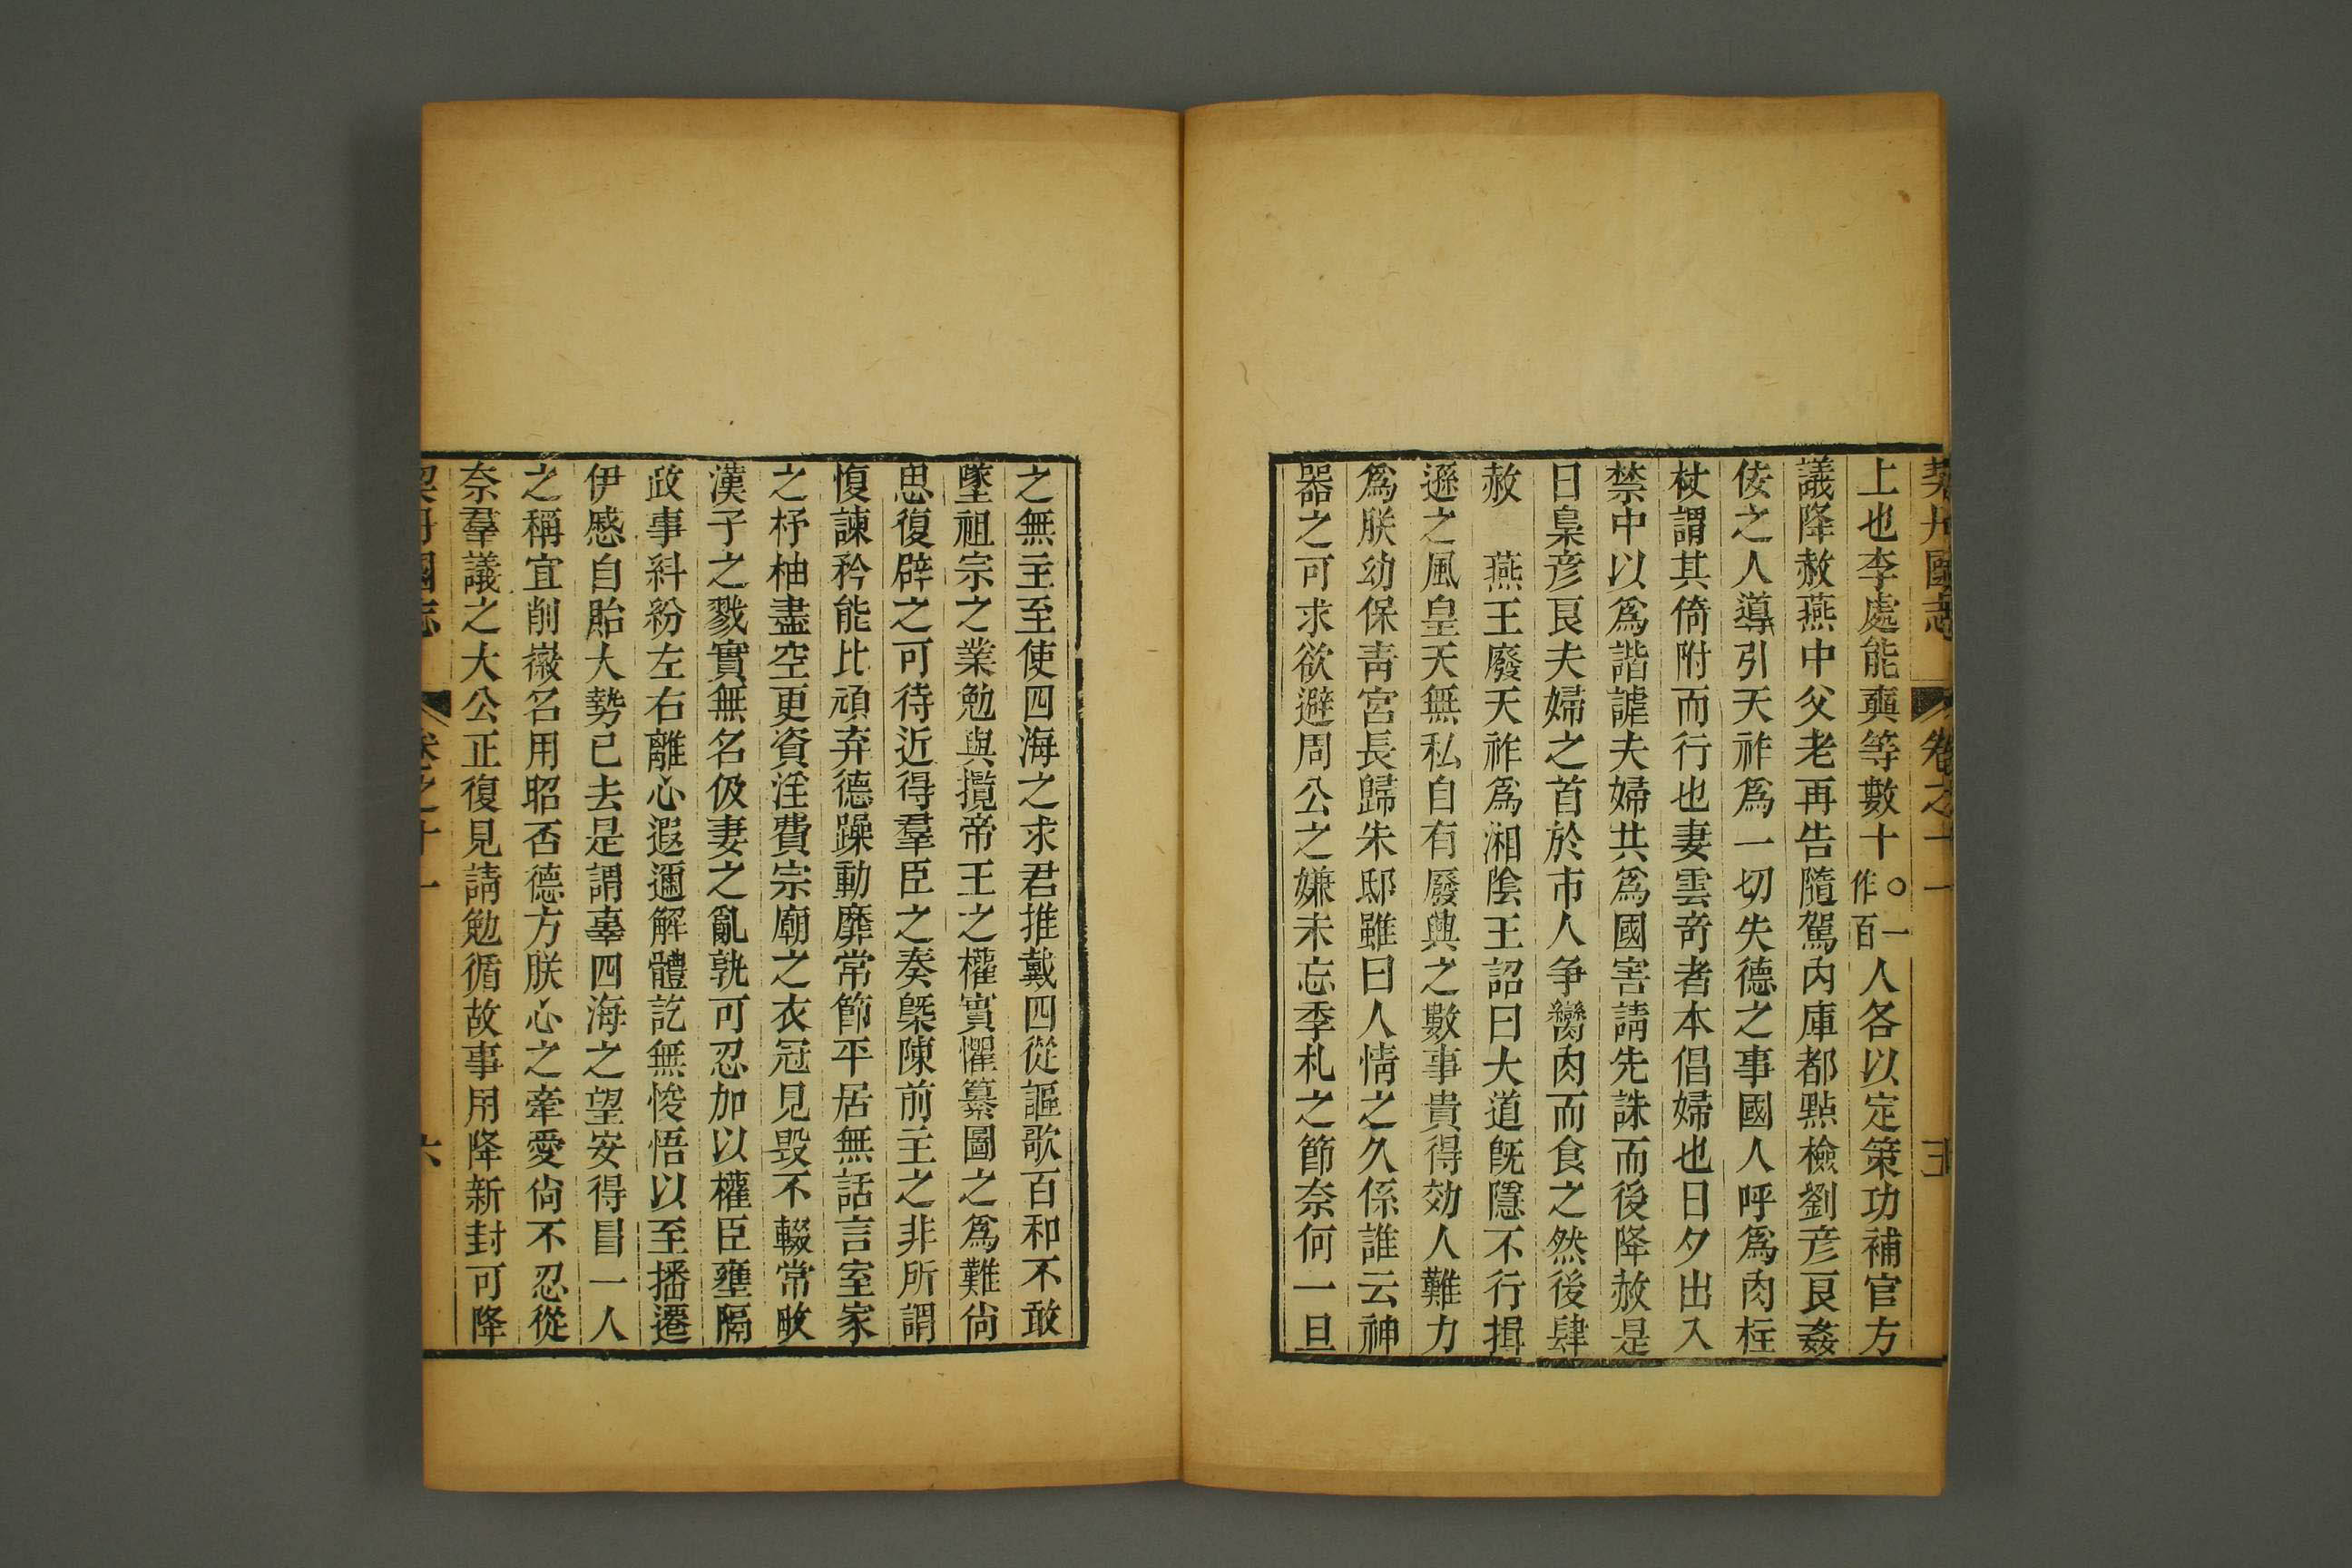 契丹國志 卷之十一 五
上也李處能奭等數十〇一作百人各以定策功補官方
議降赦燕中父老再告隨駕內庫都點檢劉彦良姦
佞之人導引天祚爲一切失德之事國人呼爲肉柱
杖謂其倚附而行也妻雲竒者本倡婦也日夕出入
禁中以爲諧謔夫婦共爲國害請先誅而後降赦是
日梟彦良夫婦之首於市人争臠肉而食之然後肆
赦 燕王廢天祚爲湘陰王詔曰大道旣隱不行揖
遜之風皇天無私自有廢興之數事貴得効人難力
爲朕幼保靑宮長歸朱邸雖曰人情之久係誰云神
器之可求欲避周公之嫌未忘季札之節奈何一旦
之無主至使四海之求君推戴四從謳歌百和不敢
墜祖宗之業勉與攬帝王之權實懼纂圖之爲難尙
思復辟之可待近得羣臣之奏槩陳前主之非所謂
愎諫矜能比頑弃德躁動靡常節平居無話言室家
之杼柚盡空更資淫費宗廟之衣冠見毁不輟常畋
漢子之戮實無名伋妻之亂孰可忍加以權臣壅隔
政事紏紛左右離心遐邇解體訖無悛悟以至播遷
伊慼自貽大勢已去是謂辜四海之望安得冒一人
之稱宜削徽名用昭否德方朕心之牽愛尙不忍從
奈羣議之大公正復見請勉循故事用降新封可降
契丹國志 卷之十一 六